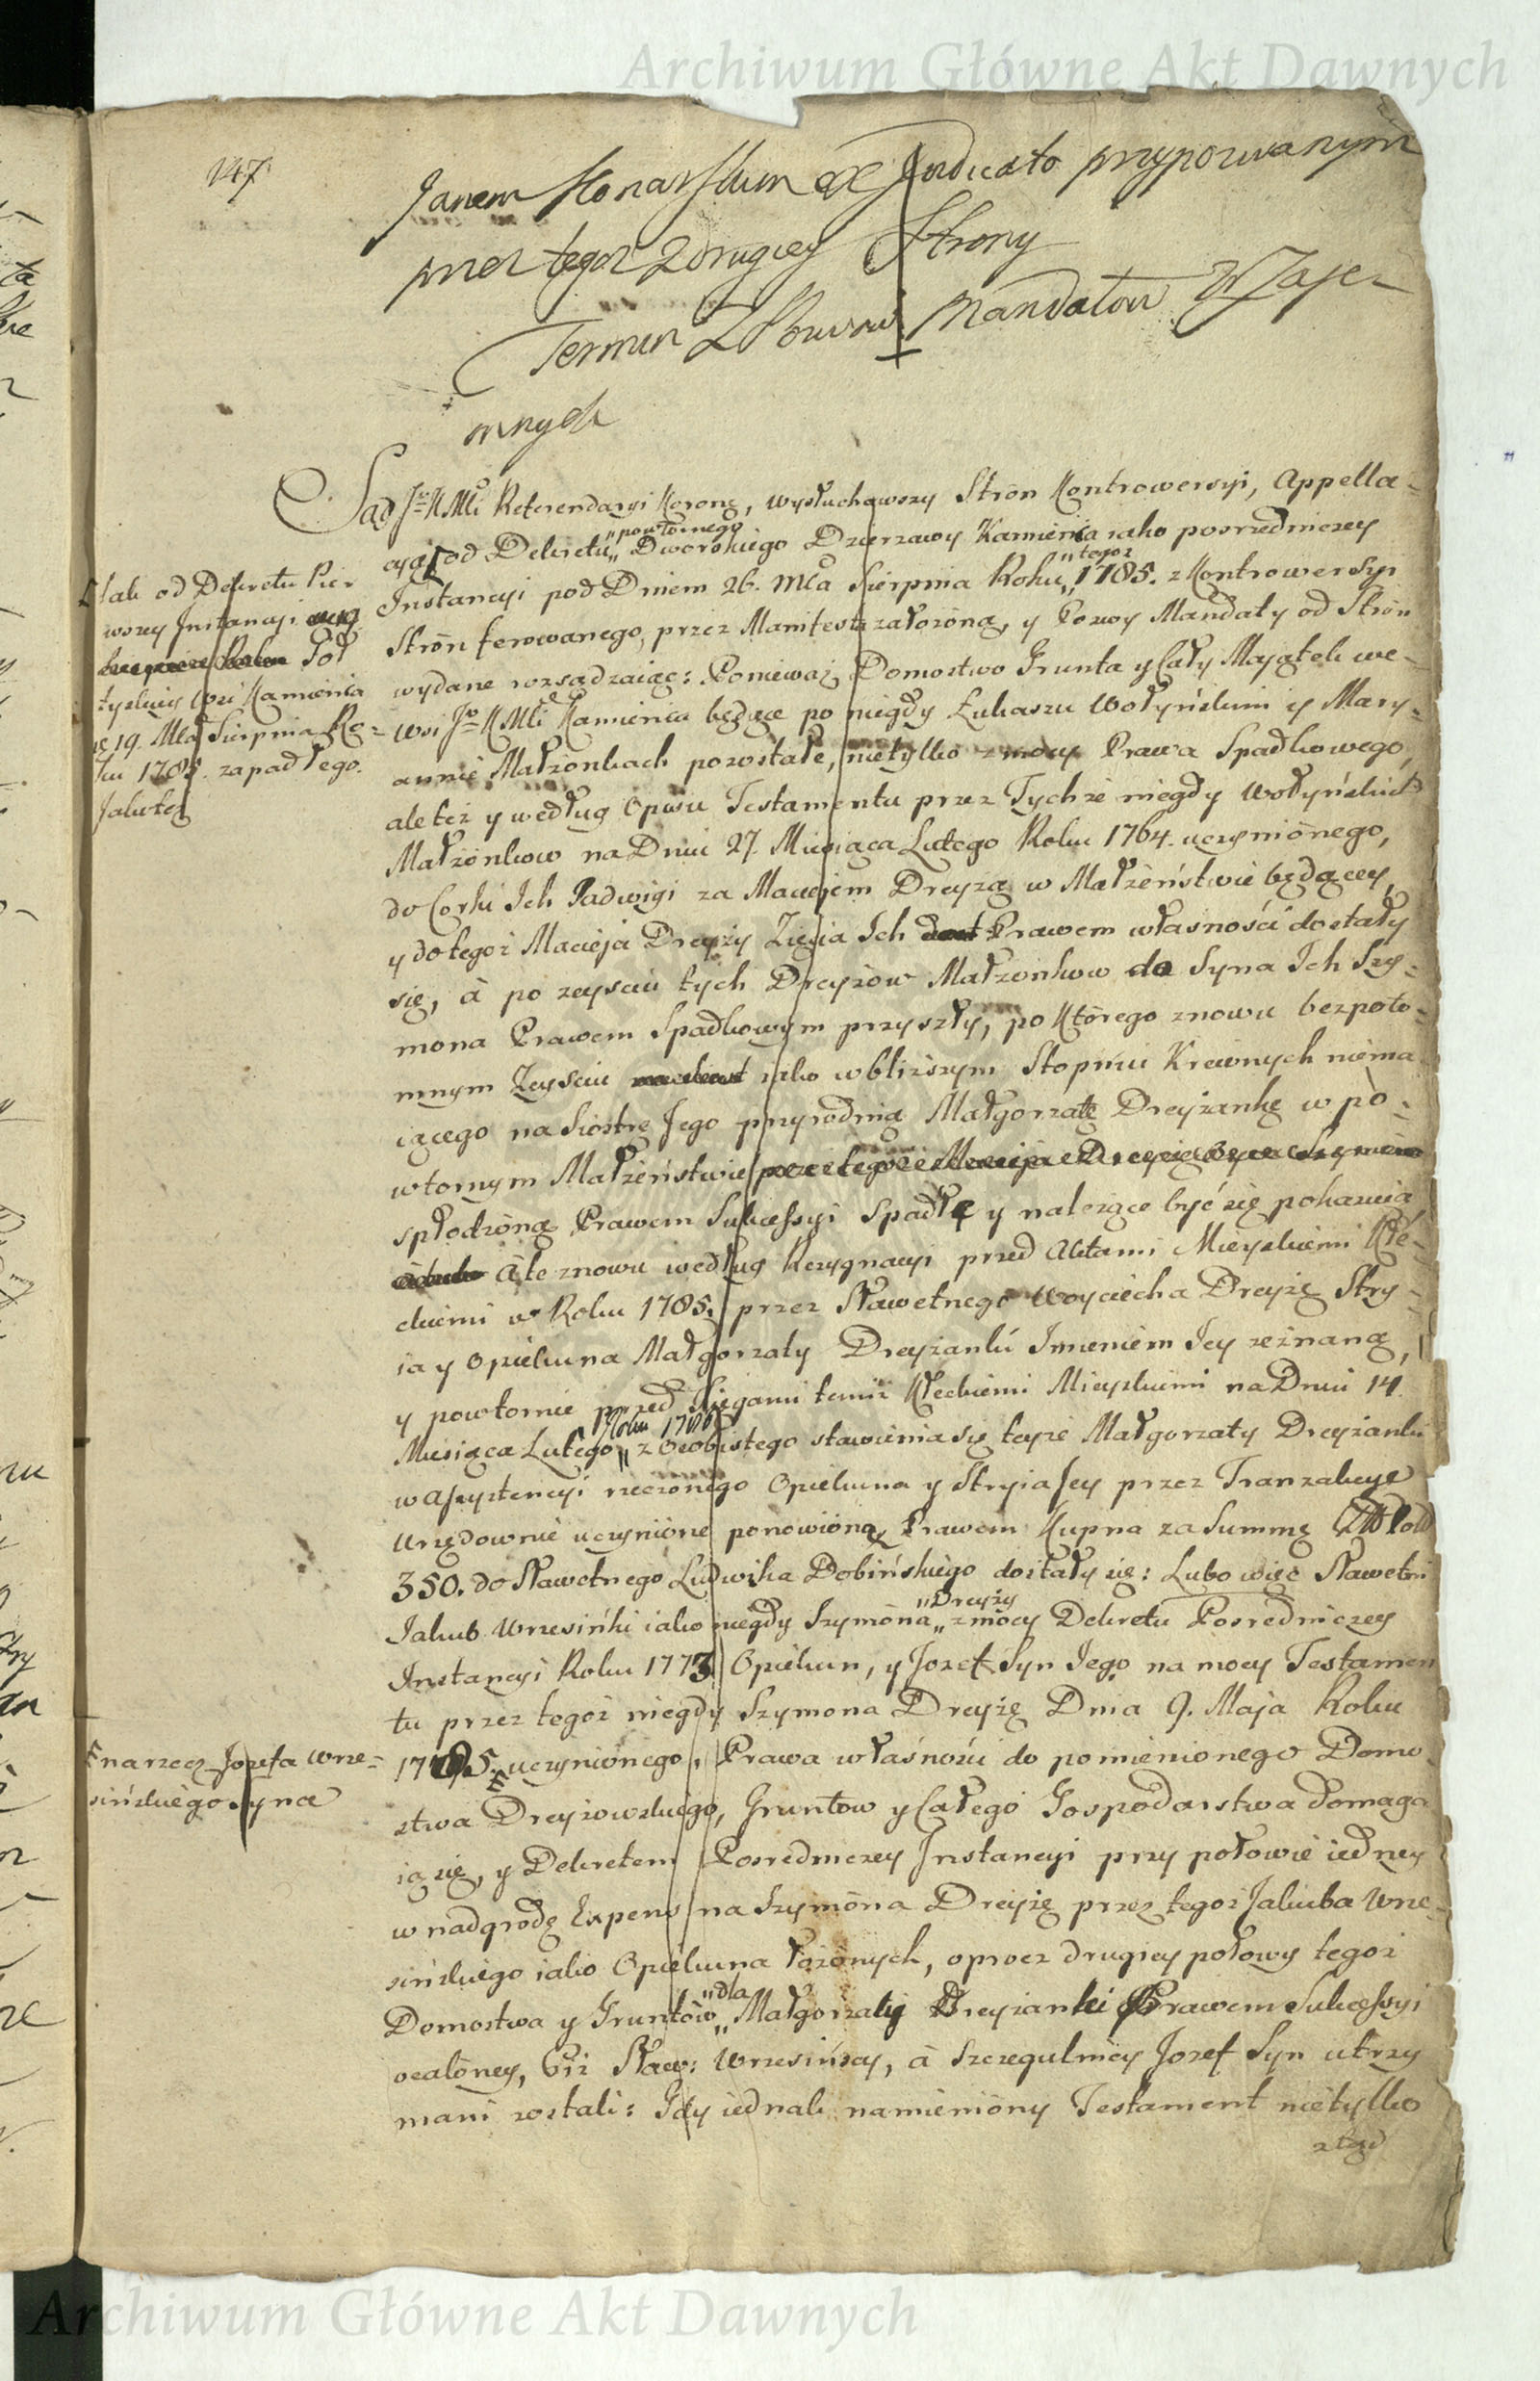 Archiwum Główne Akt Dawnych
147
Janem Konarskim ex Indicato przypozwanym
przez tegoż z drugiey Strony
Termin z Pozwów Mandatów Wzaje-
mnych
Sąd JoKMci Referendaryi Koronę, wysłuchawszy Strón Kontrowersyi, Appella-
cyą od Dekretu „powtórnego„ Dworskiego Dzierzawy Kamieńca iako posrzedniczey
Instancyi pod Dniem 26. Mca Sierpnia Roku „tegoż„ 1785. z Kontrowersyi
Strón ferowanego, przez Manifest założóną, y Pozwy Mandaty od Strón
wydane rozsądzaiąc: Ponieważ Domostwo Grunta y Cały Maiątek we
wsi JoKMci Kamieńcu będące po niegdy Łukaszu Wołyńskim y Mary-
annie Małżonkach pozostałe, nietylko z mocy Prawa Spadkowego,
ale też y według Opisu Testamentu przez Tychże niegdy Wołyńskich
Małżónkow na Dniu 27. Miesiąca Lutego Roku 1764. uczyniónego,
do Corki Ich Jadwigi za Maciejem Dreyzą w Małżeństwie będącey,
y do tegoż Macieja Dreyzy Zięcia Ich Prawem własności dostały
się, à po zeysciu tych Dreyzów Małzonkow do Syna Ich Szy-
mona Prawem Spadkowym przyszły, po Którego znowu bezpoto-
mnym Zeysciu iako w bliższym Stopniu Krewnych niema-
iącego na Siostrę Jego przyrodnią Małgorzatę Dreyzankę w po-
wtornym Małżeństwie przez tegoż Macieja Dreyzę Oyca Szymóna
spłodzóną Prawem Sukcessyi Spadłe y należące być się pokazuią
Ate znowu według Rezygnacyi przed Aktami Mieyskiemi Kłe-
ckiemi w Roku 1785. przez Sławetnego Woyciecha Dreyzę Stry-
ia y Opiekuna Małgorzaty Dreyzanki Imieniem Jey zeznaną,
y powtornie przed Xięgami temiż Kłeckiemi Mieyskiemi na Dniu 14.
Miesiąca Lutego „Roku 1786„ z Osobistego stawienia się teyże Małgorzaty Dreyzanki
w Assystencyi rzeczónego Opiekuna y Stryia Jey przez Tranzakcye
Urzędownie uczynióne ponowióną Prawem Kupna za Summę Zł Pols
350. do Sławetnego Ludwika Dobińskiego dostały się: Lubo więc Sławetni
Jakub Wrzesiński iako niegdy Szymóna „Dreyzy„ z mocy Dekretu Posredniczey
Instancyi Roku 1773 Opiekun, y Jozef Syn Jego na mocy Testamen
tu przez tegoż niegdy Szymona Dreyzę Dnia 9. Maja Roku
1785. uczynionego, Prawa własności do pomienionego Domo-
stwa Dreyzowskiego, Gruntow y Całego Gospodarstwa domaga
ią się, y Dekretem Posredniczey Instancyi przy połowie iedney
w nadgrodę Expens na Szymóna Dreyzę przez tegoż Jakuba Wrze-
sińskiego iako Opiekuna łożónych, oprocz drugiey połowy tegoż
Domostwa y Gruntów „dla„ Małgorzaty Dreyzanki Prawem Sukcessyi
ocalóney, Ciż Sław: Wrzesińscy, à szczegulniey Jozef Syn utrzy
mani zostali: Gdy iednak namienióny Testament nietylko
z tąd
Tak od Dekretu Pier
wszey Instancyi
Soł
tyskiey Wsi Kamieńca
19. Mca Sierpnia Ro-
ku 1785. zapadłego.
Jako też
na rzecz Jozefa Wrze-
sińskiego Syna
Archiwum Główne Akt Dawnych